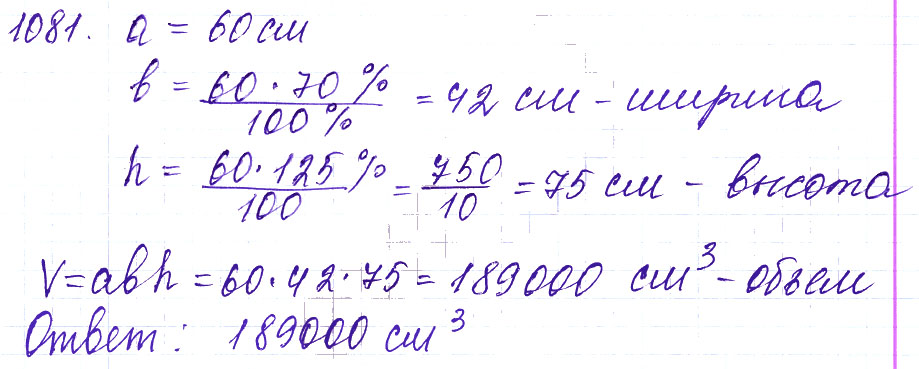 1081. a = 60 см
b = 60 · 70 % / 100 % = 42 см – ширина
h = 60 · 125 % / 100 = 750 / 10 = 75 см – высота
V = abh = 60 · 42 · 75 = 189000 см³ – объем
Ответ: 189000 см³